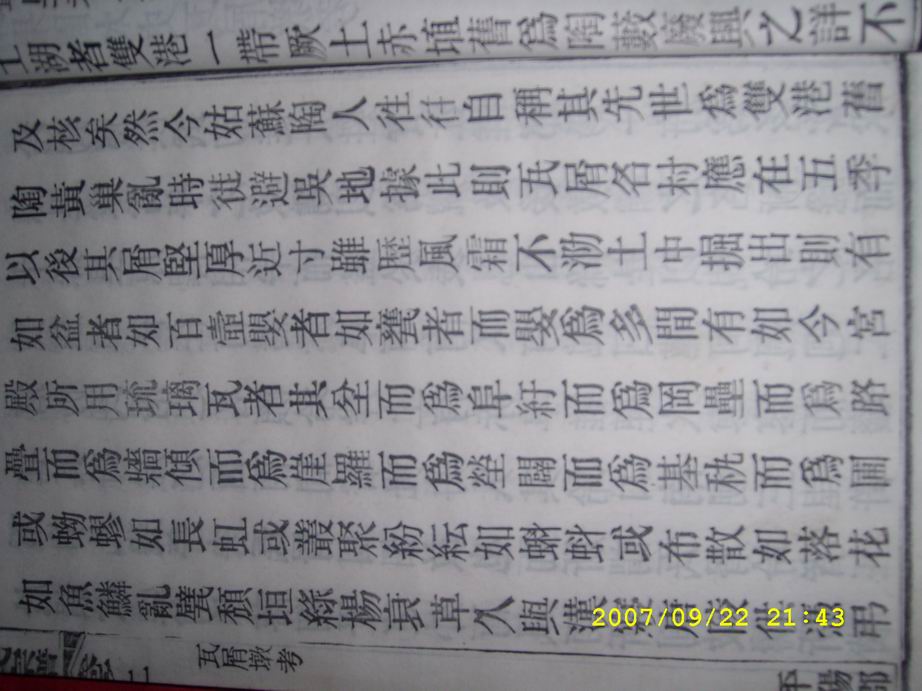 土湖者雙港一帶厥土赤埴舊為陶藪廢興之詳不
及核矣然今姑蘇陶人往往自稱其先世為雙港舊
陶黃巢亂時徙避吳地據此則瓦屑名村應在五季
以後其屑堅厚近寸雖歷風霜不泐土中掘出則有
如盆者如百壼嬰者如甕者而嬰為多間有如今宮
殿所用琉璃瓦者其坌而為阜紆而為岡壘而為路
疊而為牆傾而為崖羅而為塋闢而為基秇而為圃
或蚴蟉如長虹或叢聚紛紜如蝌蚪或布散如落花
如魚鱗亂甓頹垣綠楊衰草久與漢弔
瓦屑墩考
平陽郡
2007/09/22 21:43